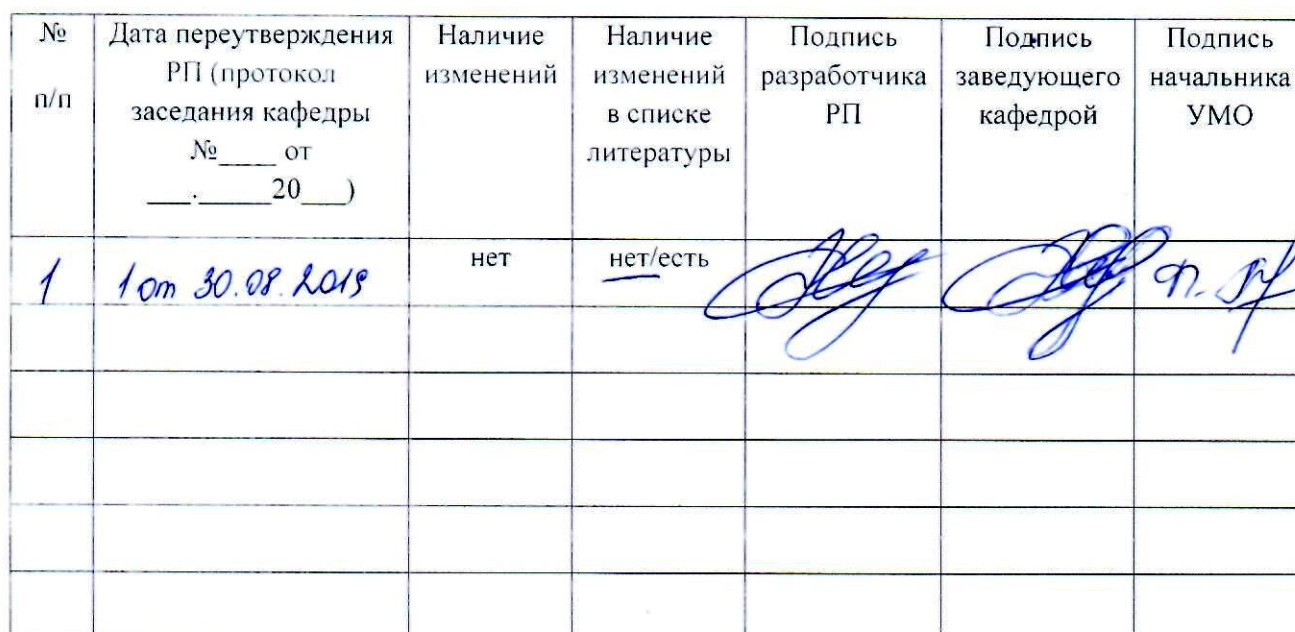 №
п/п
Дата переутверждения
РП (протокол
заседания кафедры
№____ от
___._____20___)
Наличие
изменений
Наличие
изменений
в списке
литературы
Подпись
разработчика
РП
Подпись
заведующего
кафедрой
Подпись
начальника
УМО
1
1 от 30.08.2019
нет
нет/есть